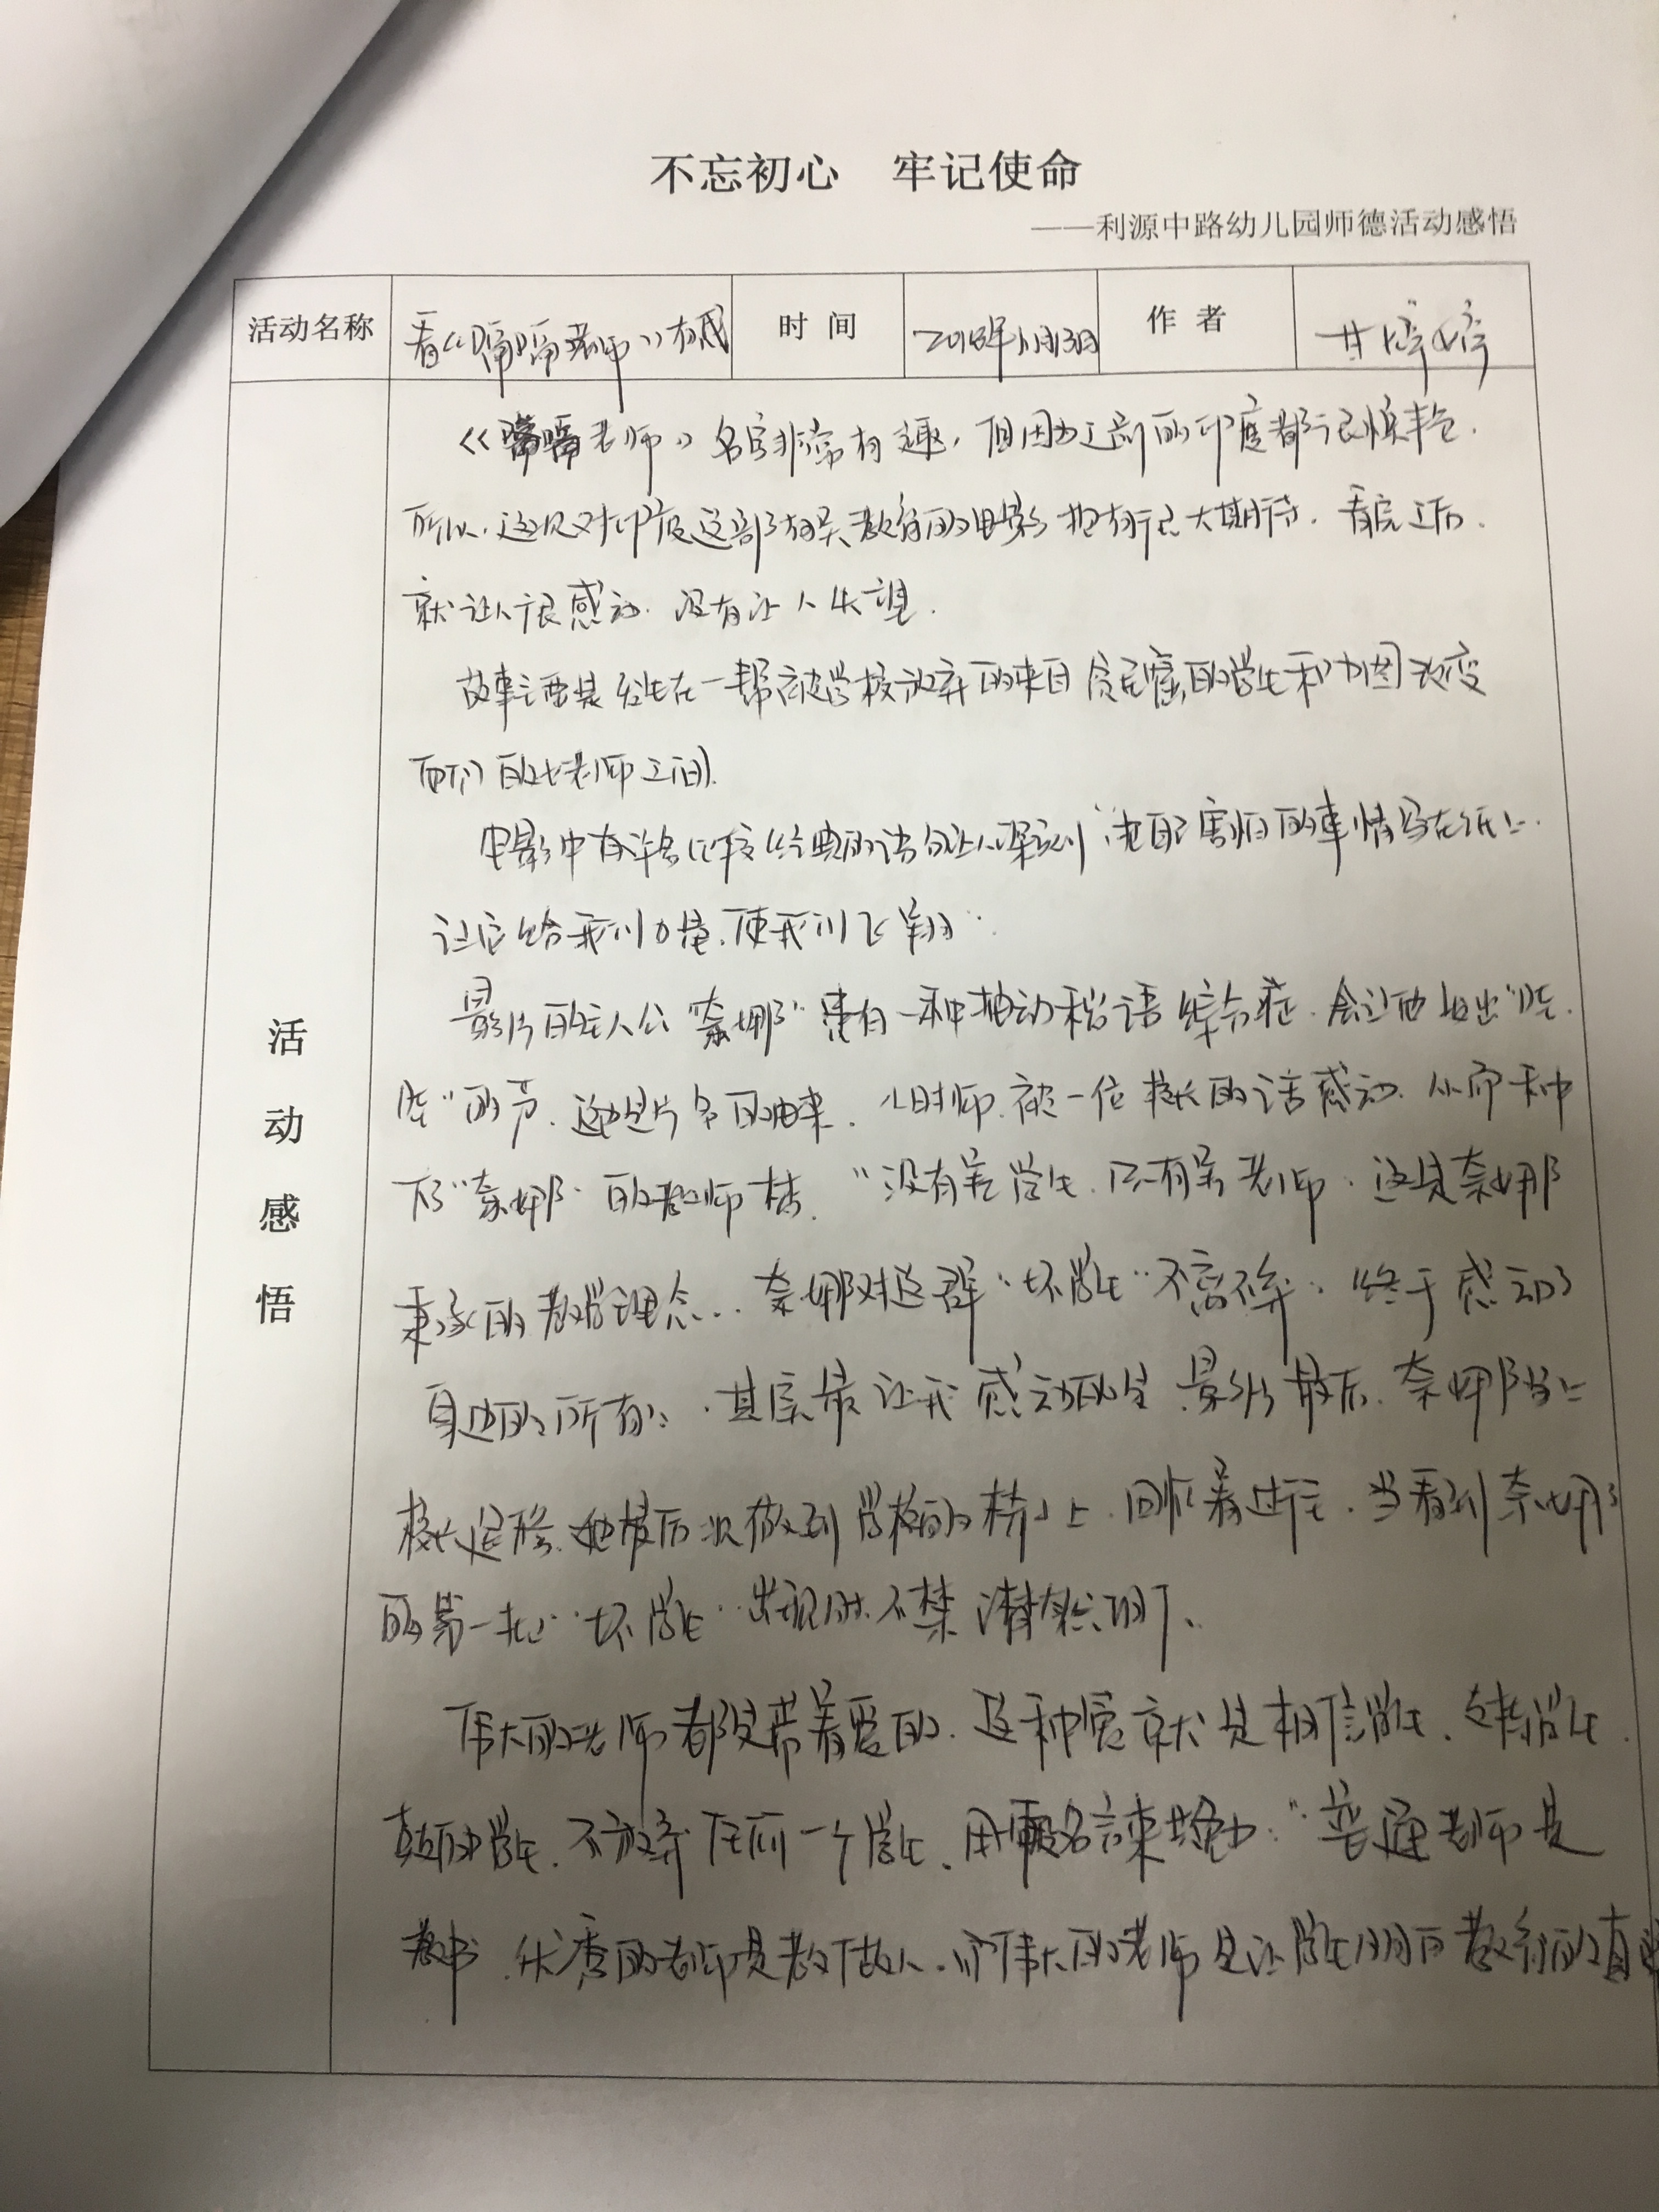 不忘初心 牢记使命
——利源中路幼儿园师德活动感悟
活动名称 看《嗝嗝老师》有感 时间 2018年11月13日 作者 甘婷婷
活动感悟
《嗝嗝老师》名字非常有趣，但因为之前的印度都很精彩.
所以.这次对印度这部有关教育的电影抱有很大期待.看完之后.
就让人很感动.没有让人失望.
故事主要是发生在一帮被学校放弃的来自贫民窟的学生和力图改变
他们的老师之间.
电影中有许多比较经典的语句让人深刻“把自己害怕的事情写在纸上.
让它给我们力量.使我们飞翔”.
影片的主人公“奈娜”患有一种抽动秽语综合症.会让她发出“哇.
哇”的声.这也是片名的由来.儿时.被一位校长的话感动.从而种
下了“奈娜”的教师梦.“没有差学生.只有差老师.这是奈娜
秉承的教学理念..奈娜对这群“坏学生”不离不弃.终于感动了
身边的所有人.其实最让我感动的是.影片最后.奈娜当上
校长退休.她最后一次做到学校的椅子上.回忆着过往.当看到奈娜
的第一批“坏学生”出现时.不禁潸然泪下、
伟大的老师都是带着爱的.这种爱就是相信学生、支持学生.
鼓励学生.不放弃任何一个学生、用一段名言来共勉:“普通老师是
教书.优秀的老师是教做人.而伟大的老师是让学生明白教育的真